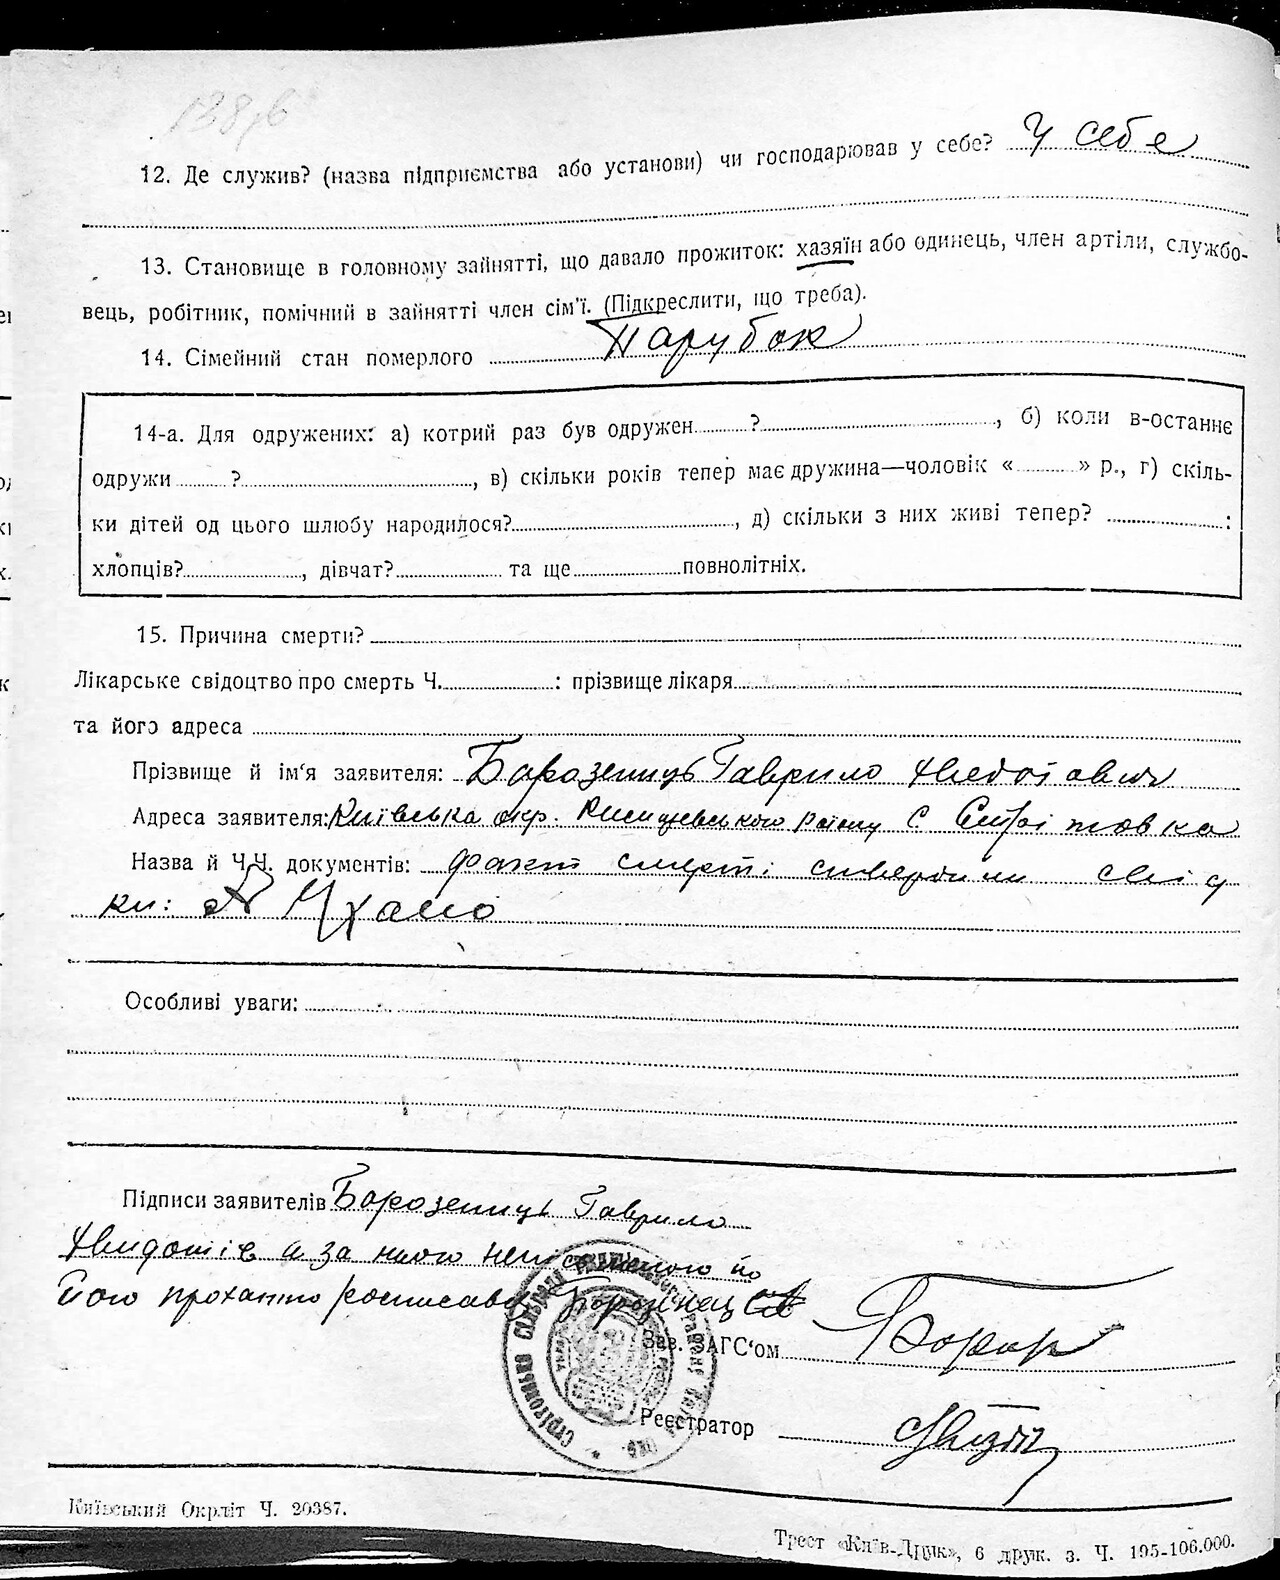 138,б
12. Де служив? (назва підприємства або установи) чи господарював у себе? У себе
13. Становище в головному зайнятті, що давало прожиток: хазяїн або одинець, член артіли, службо-
вець, робітник, помічний в зайнятті член сім'ї. (Підкреслити, що треба).
14. Сімейний стан померлого Парубок
14-а. Для одружених: а) котрий раз був одружен ?, б) коли в-останнє
одружи ?, в) скільки років тепер має дружина—чоловік « » р., г) скіль-
ки дітей од цього шлюбу народилося?, д) скільки з них живі тепер? :
хлопців?, дівчат? та ще повнолітніх.
15. Причина смерти?
Лікарське свідоцтво про смерть Ч. : прізвище лікаря
та його адреса
Прізвище й ім'я заявителя: Борозенець Гаврило
Адреса заявителя: Київська окр. району с
Назва й Ч.Ч. документів: факт смерті ствердили свід
ки:
Особливі уваги:
Підписи заявителів Борозенець Гаврило
а за нього неписьменого по
його проханню росписавсь
Зав. ЗАГС'ом
Реєстратор
Київський Окрліт Ч. 20387.
Трест «Київ-Друк», 6 друк. з. Ч. 195-106.000.